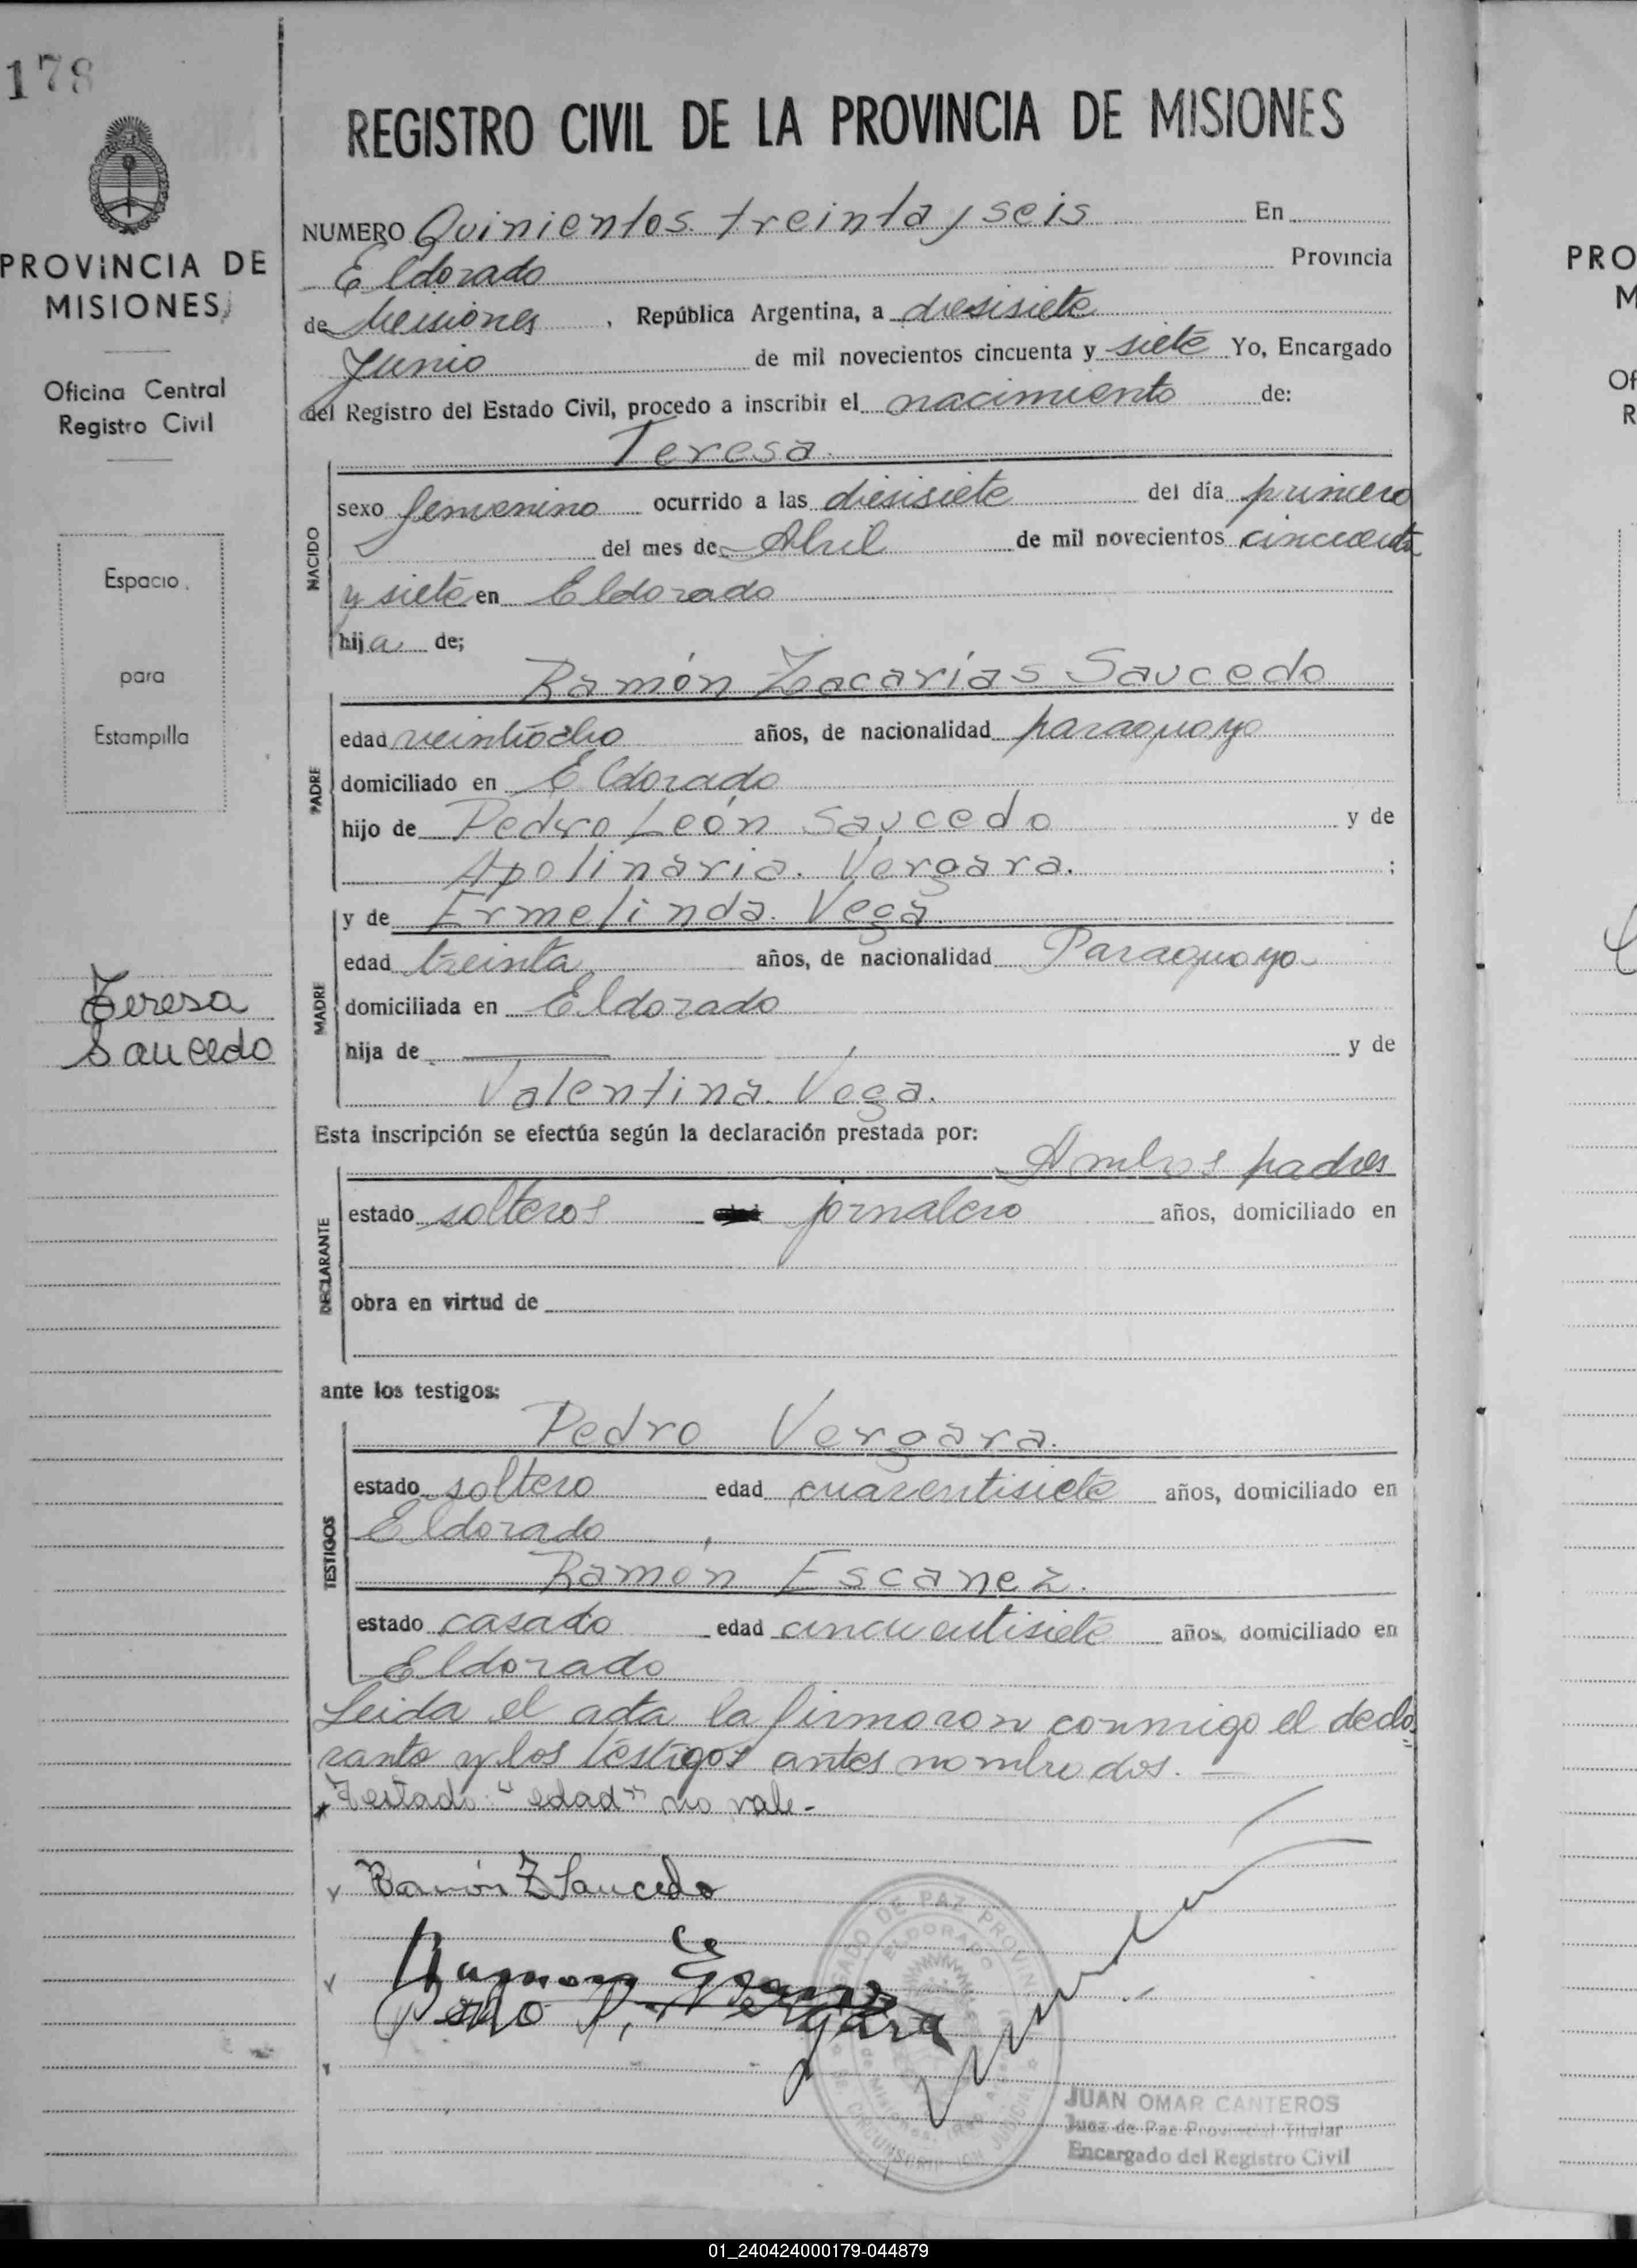 178
REGISTRO CIVIL DE LA PROVINCIA DE MISIONES
PROVINCIA DE
MISIONES
Oficina Central
Registro Civil
Espacio
para
Estampilla
Teresa
Saucedo
NUMERO Quinientos treinta y seis En
Eldorado Provincia
de Misiones, República Argentina, a diesisiete
Junio de mil novecientos cincuenta y siete Yo, Encargado
del Registro del Estado Civil, procedo a inscribir el nacimiento de:
Teresa
NACIDO
sexo femenino ocurrido a las diesisiete del día primero
del mes de Abril de mil novecientos cincuenta
y siete en Eldorado
hija de;
Ramón Zacarías Saucedo
PADRE
edad veintiocho años, de nacionalidad paraguayo
domiciliado en Eldorado
hijo de Pedro León Saucedo y de
Apolinaria Vergara. ;
MADRE
y de Ermelinda Vega
edad treinta años, de nacionalidad Paraguaya
domiciliada en Eldorado
hija de — y de
Valentina Vega.
Esta inscripción se efectúa según la declaración prestada por:
Ambos padres
DECLARANTE
estado solteros jornalero años, domiciliado en
obra en virtud de
ante los testigos:
Pedro Vergara.
TESTIGOS
estado soltero edad cuarentisiete años, domiciliado en
Eldorado
Ramón Escanez.
estado casado edad cincuentisiete años, domiciliado en
Eldorado
Leida el acta la firmaron conmigo el decla
rante y los testigos antes nombrados. —
Testado: "edad" no vale-
Ramón Z Saucedo
Ramon Escanez
Pedro P. Vergara
JUZGADO DE PAZ PROVINCIAL
ELDORADO
CIRCUNSCRIPCION JUDICIAL
JUAN OMAR CANTEROS
Juez de Paz Provincial Titular
Encargado del Registro Civil
PRO
M
Of
R
01_240424000179-044879